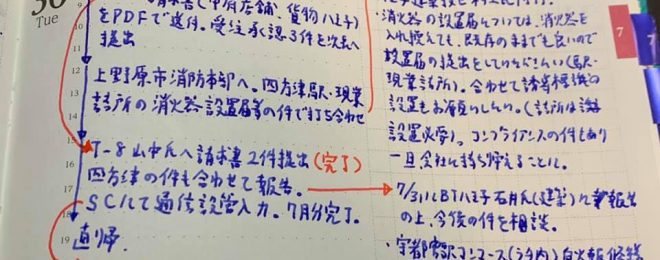 30
Tue
9
(甲府店舗、貨物八王子)
をPDFで送付。受注承認3件を次長へ
提出
10
11
12
上野原市消防本部へ。四方津駅・現業
13
詰所の消火器設置届等の件で打ち合わせ
14
15
T-8 山中氏へ請求書2件提出(完了)
16
四方津の件も合わせて報告。
17
SCにて通信設営入力。7月分完了。
18
19
直帰。
・消火器の設置届については、消火器を
入れ換えても、既存のままでも良いので
設置届の提出をしていただきたい(駅・
現業詰所)。合わせて誘導標識の
設置もお願いしたい。(詰所は
設置必要)。コンプライアンスの件もあり
一旦会社に持ち控えることに。
7/31にBT八王子石月氏(建築)に報告
の上、今後の件を相談。
・宇都宮駅コンコース(ラチ内)自火報修繕
7
7